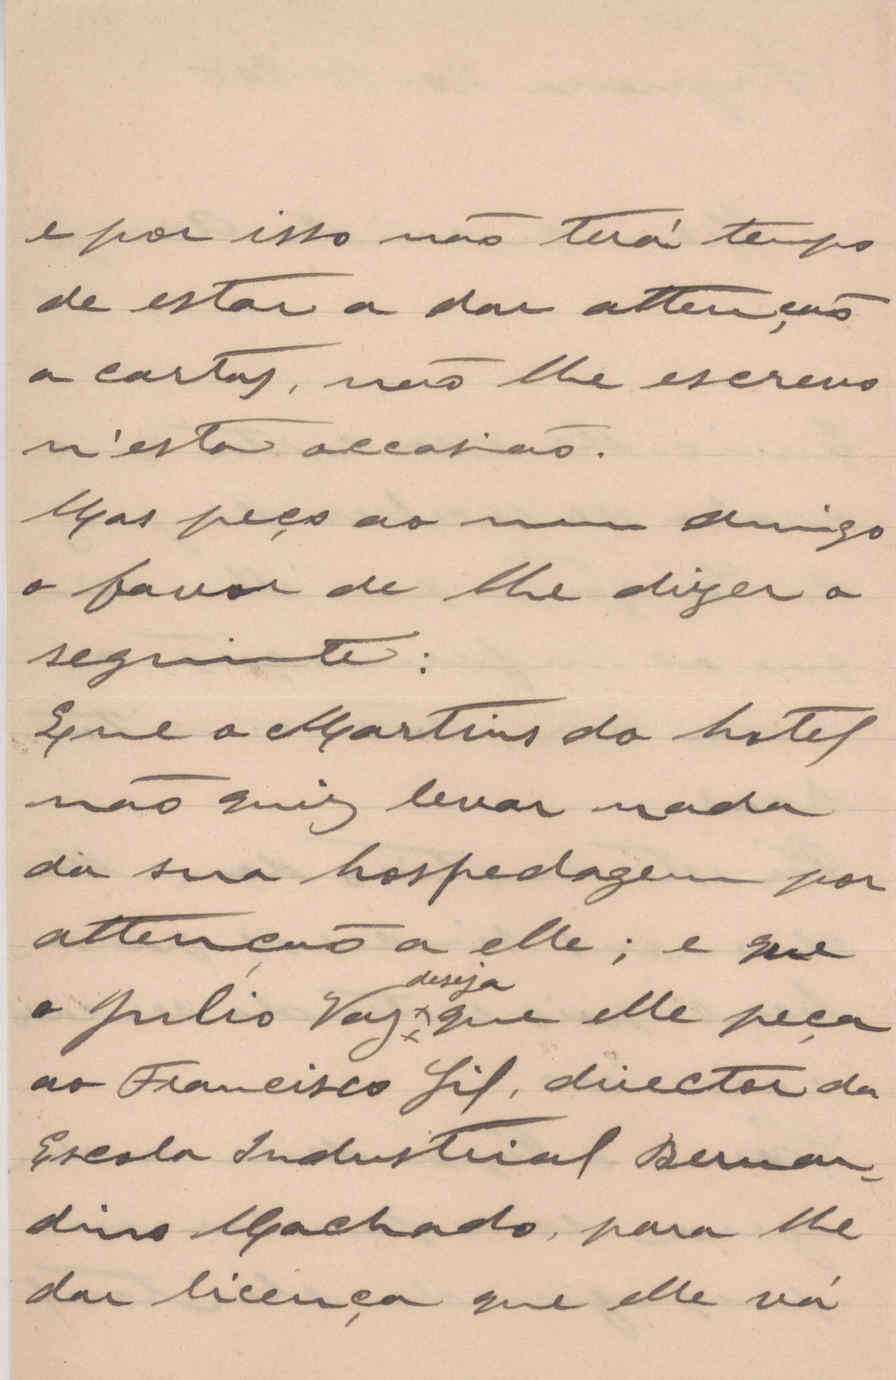 e por isso não terá tempo
de estar a dar attenção
a cartas, não lhe escrevo
n'esta occasião.
Mas peço ao meu amigo
o favor de lhe dizer o
seguinte:
Que o Martins do hotel
não quiz levar nada
da sua hospedagem por
attenção a elle; e que
deseja
o Julio Vaz que elle peça
ao Francisco Gil, director da
Escola Industrial Bernar-
dino Machado, para lhe
dar licença que elle vá